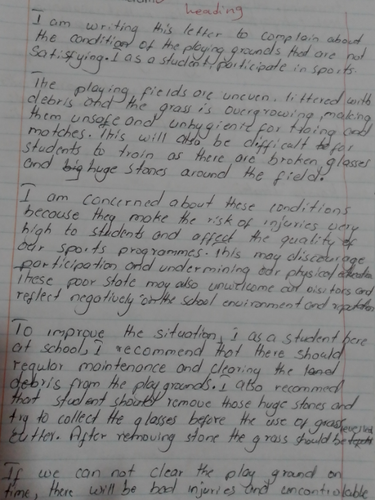 heading
I am writing this letter to complain about
the condition of the playing grounds that are not
satisfying. I as a student, participate in sports
The playing fields are uneven, littered with
debris and the grass is overgrowing, making
them unsafe and unhygienic for and
matches. This will also be difficult for
students to train as there are broken glasses
and big huge stones around the field.
I am concerned about these conditions
because they make the risk of injuries very
high to students and affect the quality of
our sports programmes. This may discourage
participation and undermining our physical education
These poor state may also unwelcome our visitors and
reflect negatively on the school environment and reputation
To improve the situation, i as a student here
at school, I recommend that there should
regular maintenance and clearing the land
debris from the playgrounds. I also recommed
that student should remove those huge stones and
try to collect the glasses before the use of grass
cutter. After removing stone the grass should be
If we can not clear the play ground on
time, there will be bad injuries and uncontrolable